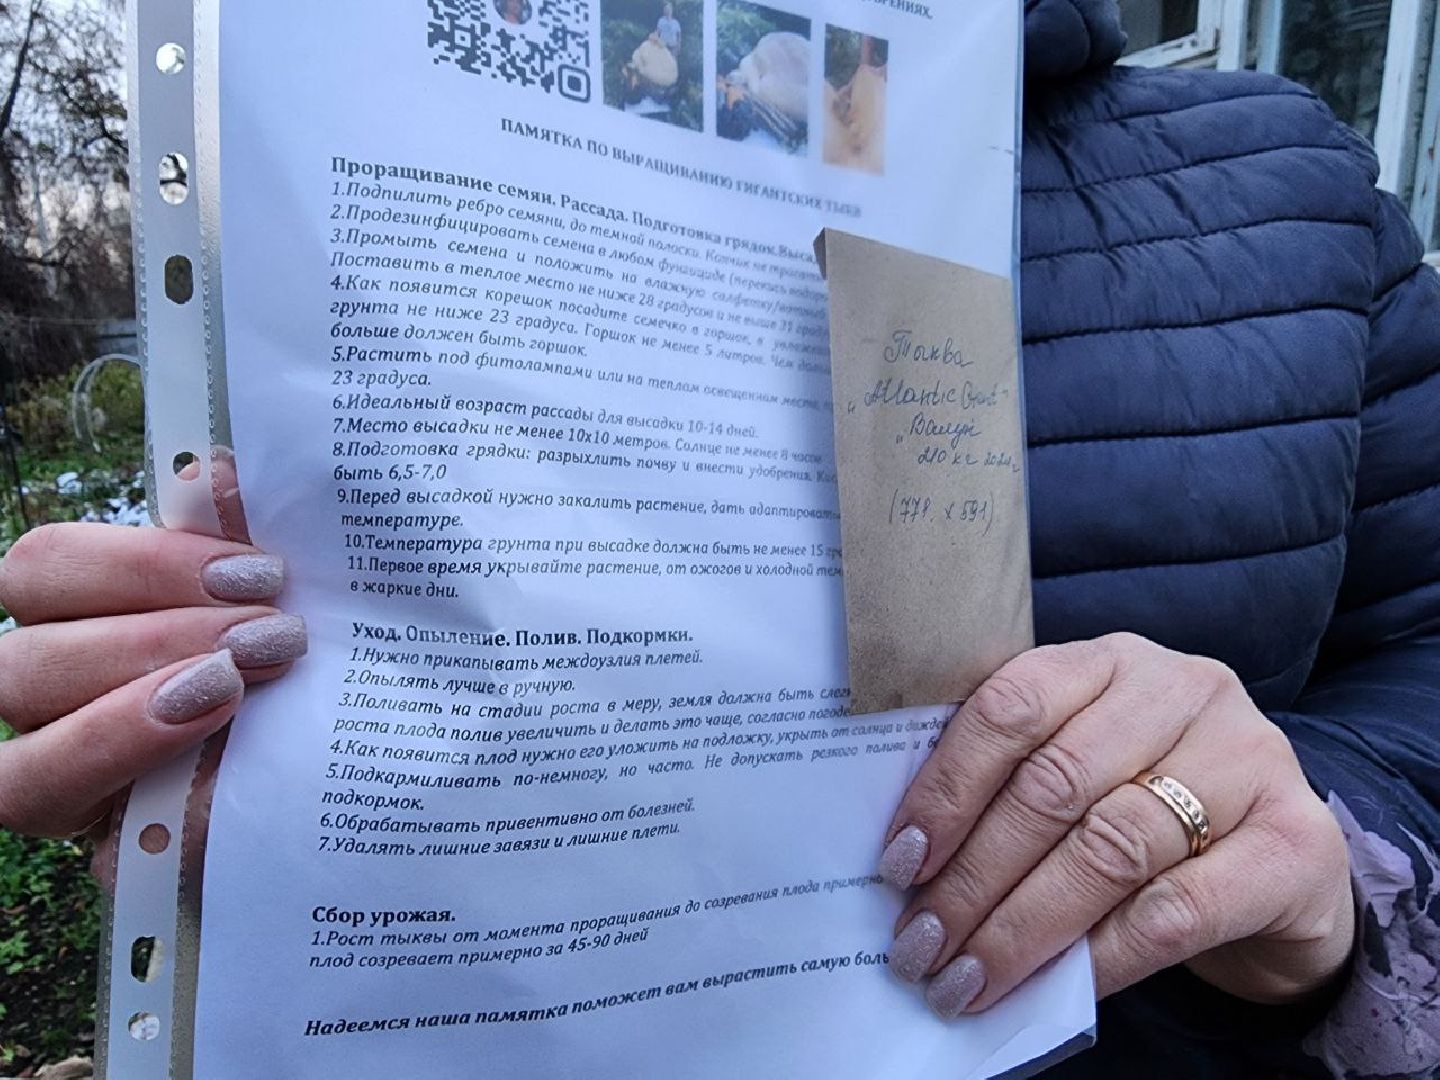 ПАМЯТКА ПО ВЫРАЩИВАНИЮ ГИГАНТСКИХ ТЫКВ
Проращивание семян. Рассада. Подготовка грядок. Выса
1.Подпилить ребро семяни, до темной полоски. Кончик не трогать
2.Продезинфицировать семена в любом фунгициде (перекись водоро
3.Промыть семена и положить на влажную салфетку/
Поставить в теплое место не ниже 28 градусов и не выше 31 град
4.Как появится корешок посадите семечко в горшок, в
грунта не ниже 23 градуса. Горшок не менее 5 литров. Чем
больше должен быть горшок.
5.Растить под фитолампами или на теплом освещенном месте,
23 градуса.
6.Идеальный возраст рассады для высадки 10-14 дней.
7.Место высадки не менее 10х10 метров. Солнце не менее 8 часов
8.Подготовка грядки: разрыхлить почву и внести удобрения.
быть 6,5-7,0
9.Перед высадкой нужно закалить растение, дать адаптировать
температуре.
10.Температура грунта при высадке должна быть не менее 15 гра
11.Первое время укрывайте растение, от ожогов и холодной тем
в жаркие дни.
Уход. Опыление. Полив. Подкормки.
1.Нужно прикапывать междоузлия плетей.
2.Опылять лучше в ручную.
3.Поливать на стадии роста в меру, земля должна быть слег
роста плода полив увеличить и делать это чаще, согласно погоде
4.Как появится плод нужно его уложить на подложку, укрыть от солнца и дождей
5.Подкармиливать по-немногу, но часто. Не допускать резкого полива и
подкормок.
6.Обрабатывать привентивно от болезней.
7.Удалять лишние завязи и лишние плети.
Сбор урожая.
1.Рост тыквы от момента проращивания до созревания плода примерно
плод созревает примерно за 45-90 дней
Надеемся наша памятка поможет вам вырастить самую боль
Тыква
"Atlantic Giant"
"Валун
210 кг 2024г
(778 x 591)